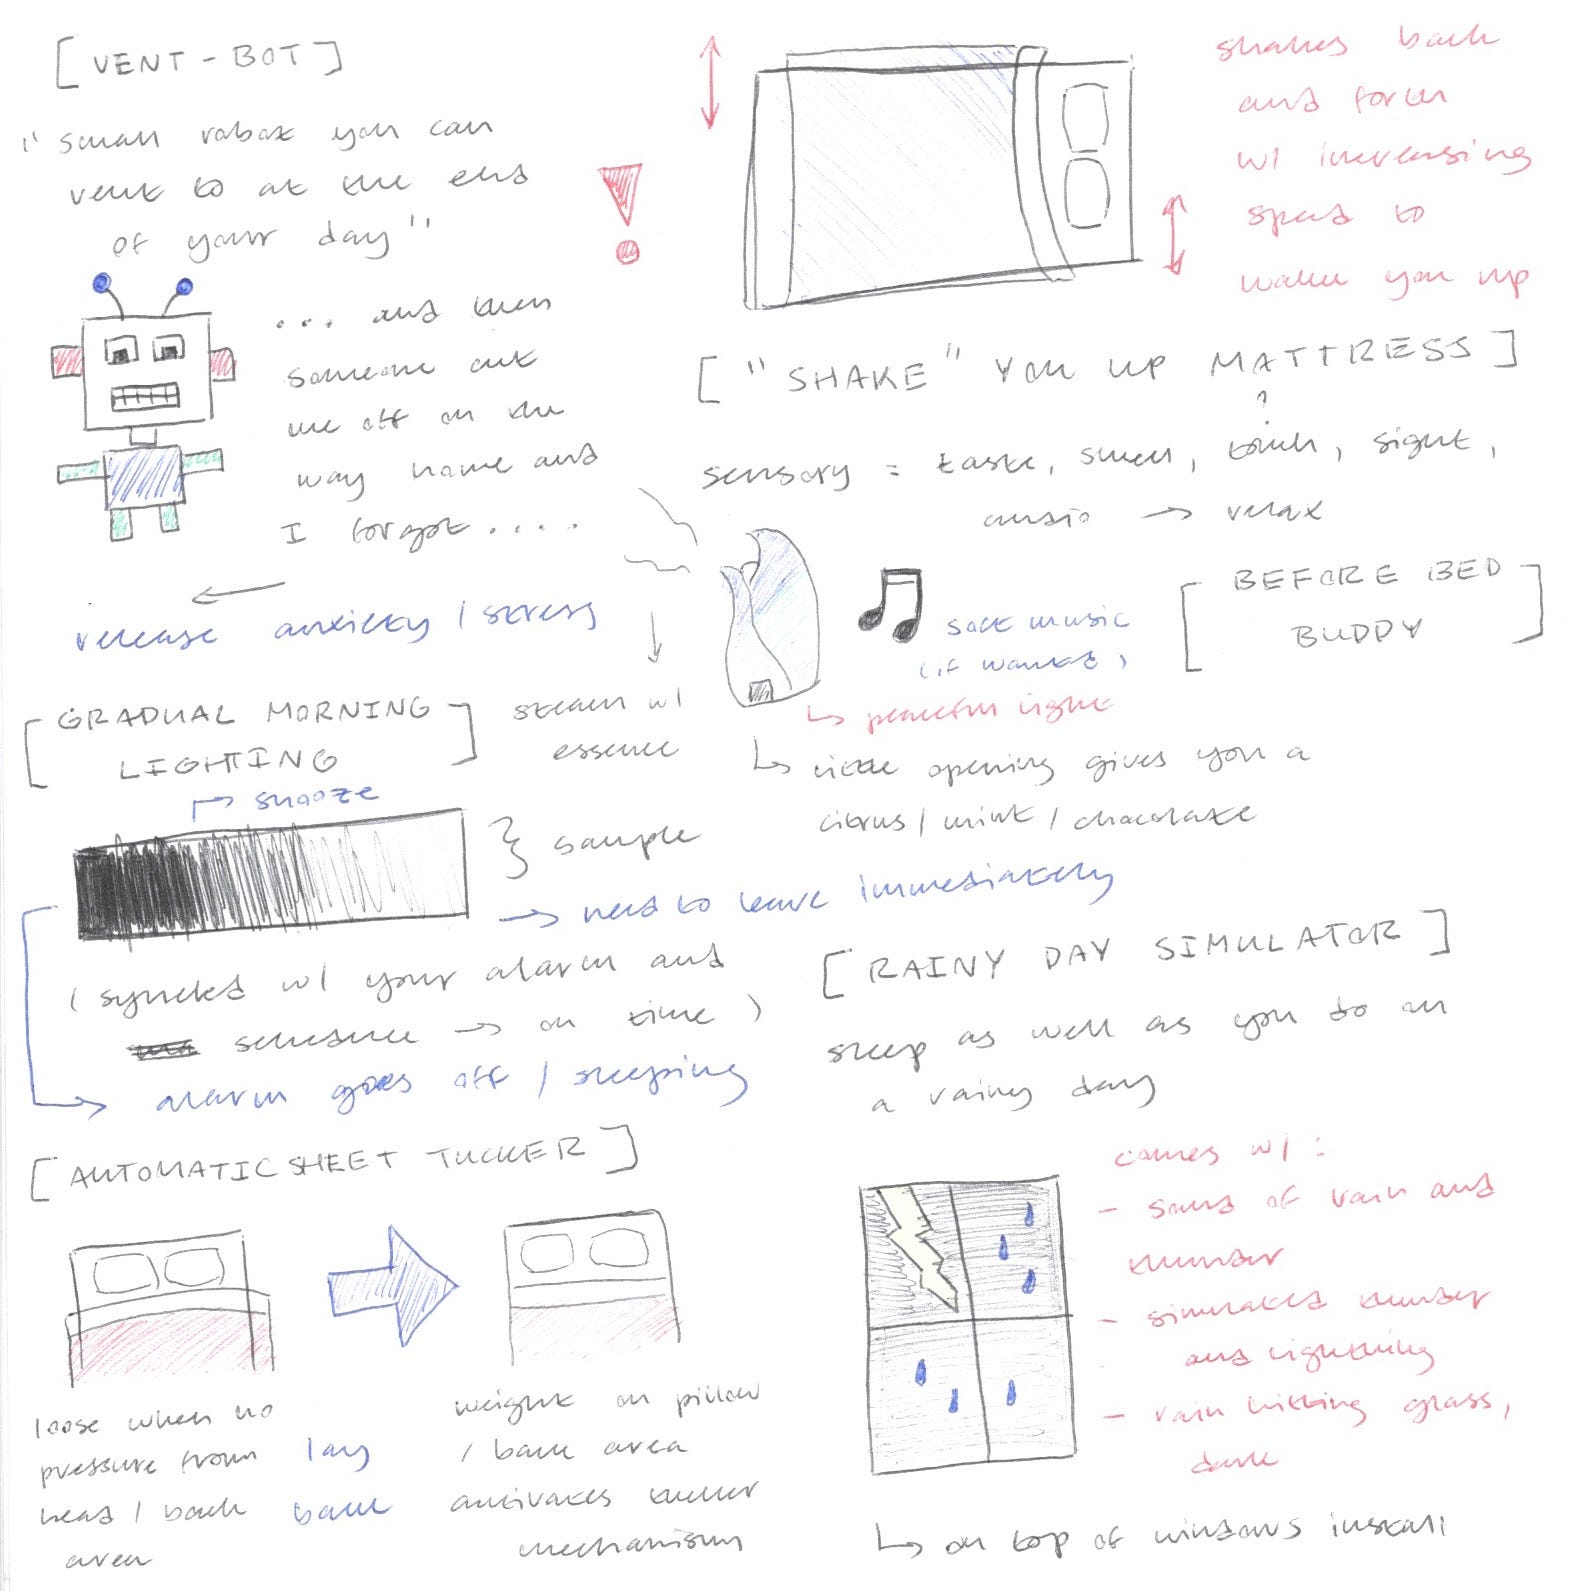 [ VENT-BOT ]
"small robot you can
vent to at the end
of your day"
... and then
someone cut
me off on the
way home and
I forgot ....
release anxiety / stress
shakes back
and forth
w/ increasing
speed to
wake you up
[ "SHAKE" YOU UP MATTRESS ]
?
sensory = taste, smell, touch, sight,
audio → relax
[ BEFORE BED
BUDDY ]
soft music
(if wanted)
↳ peaceful light
↳ little opening gives you a
citrus / mint / chocolate
steam w/
essence
[ GRADUAL MORNING
LIGHTING ]
snooze
} sample
→ need to leave immediately
( synced w/ your alarm and
schedule → on time )
alarm goes off / sleeping
[ RAINY DAY SIMULATOR ]
sleep as well as you do on
a rainy day
comes w/ :
- sound of rain and
thunder
- simulated thunder
and lightning
- rain hitting glass,
dark
↳ on top of windows install
[ AUTOMATIC SHEET TUCKER ]
loose when no
pressure from
head / back
area
lay
back
weight on pillow
/ back area
activates tucker
mechanism